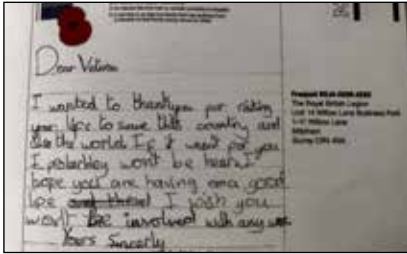 Dear Veteran
I wanted to thankyou for risking
your life to save this country and
the world. If it went for you
I probabley won't be hear. I
hope you are having a good
life I wish you
won't be involved with any
Yours Sincerly
The Royal British Legion
Unit 14 Willow Lane Business Park
1-17 Willow Lane
Mitcham
Surrey CR4 4NA